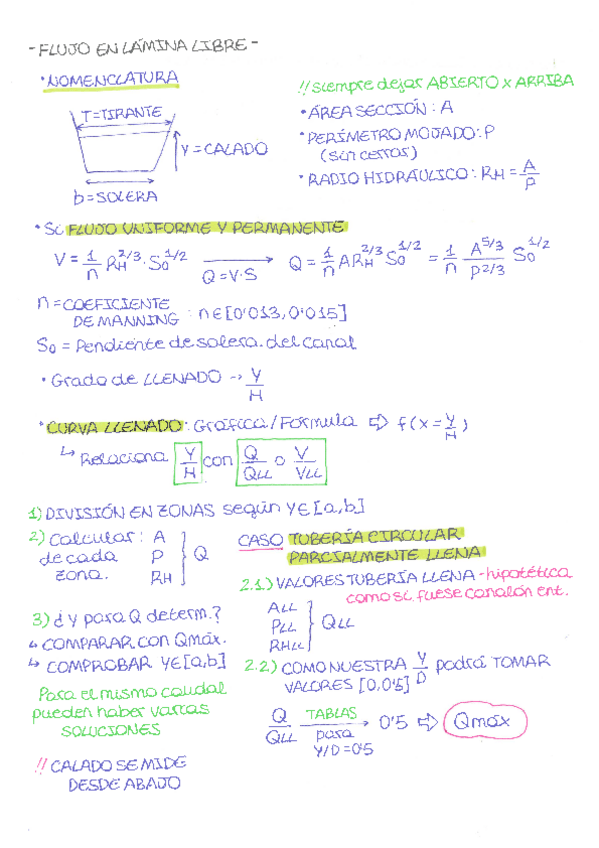 - FLUJO EN LÁMINA LIBRE -
• NOMENCLATURA
T = TIRANTE
Y = CALADO
b = SOLERA
!! Siempre dejar ABIERTO x ARRIBA
• ÁREA SECCIÓN : A
• PERÍMETRO MOJADO : P
(sin cerrar)
• RADIO HIDRÁULICO : RH = A/P
• Si FLUJO UNIFORME Y PERMANENTE
V = 1/n RH^2/3 · So^1/2 → Q = V·S Q = 1/n A RH^2/3 So^1/2 = 1/n A^5/3 / P^2/3 So^1/2
n = COEFICIENTE
DE MANNING : n ∈ [0'013, 0'015]
So = Pendiente de solera del canal
• Grado de LLENADO → Y/H
• CURVA LLENADO : Gráfica / Fórmula ⇒ f(x = Y/H)
↳ Relaciona Y/H con Q/QLL o V/VLL
1) DIVISIÓN EN ZONAS según Y ∈ [a,b]
2) Calcular : A
de cada P } Q
zona. RH
3) ¿Y para Q determ.?
↳ COMPARAR CON Qmáx.
↳ COMPROBAR Y ∈ [a,b]
Para el mismo caudal
pueden haber varias
SOLUCIONES
!! CALADO SE MIDE
DESDE ABAJO
CASO TUBERÍA CIRCULAR
PARCIALMENTE LLENA
2.1) VALORES TUBERÍA LLENA - hipotética
como si fuese canalón ent.
ALL
PLL } QLL
RHLL
2.2) COMO NUESTRA Y/D podrá TOMAR
VALORES [0,0'5]
Q/QLL TABLAS → 0'5 ⇒ Qmáx
para
Y/D = 0'5